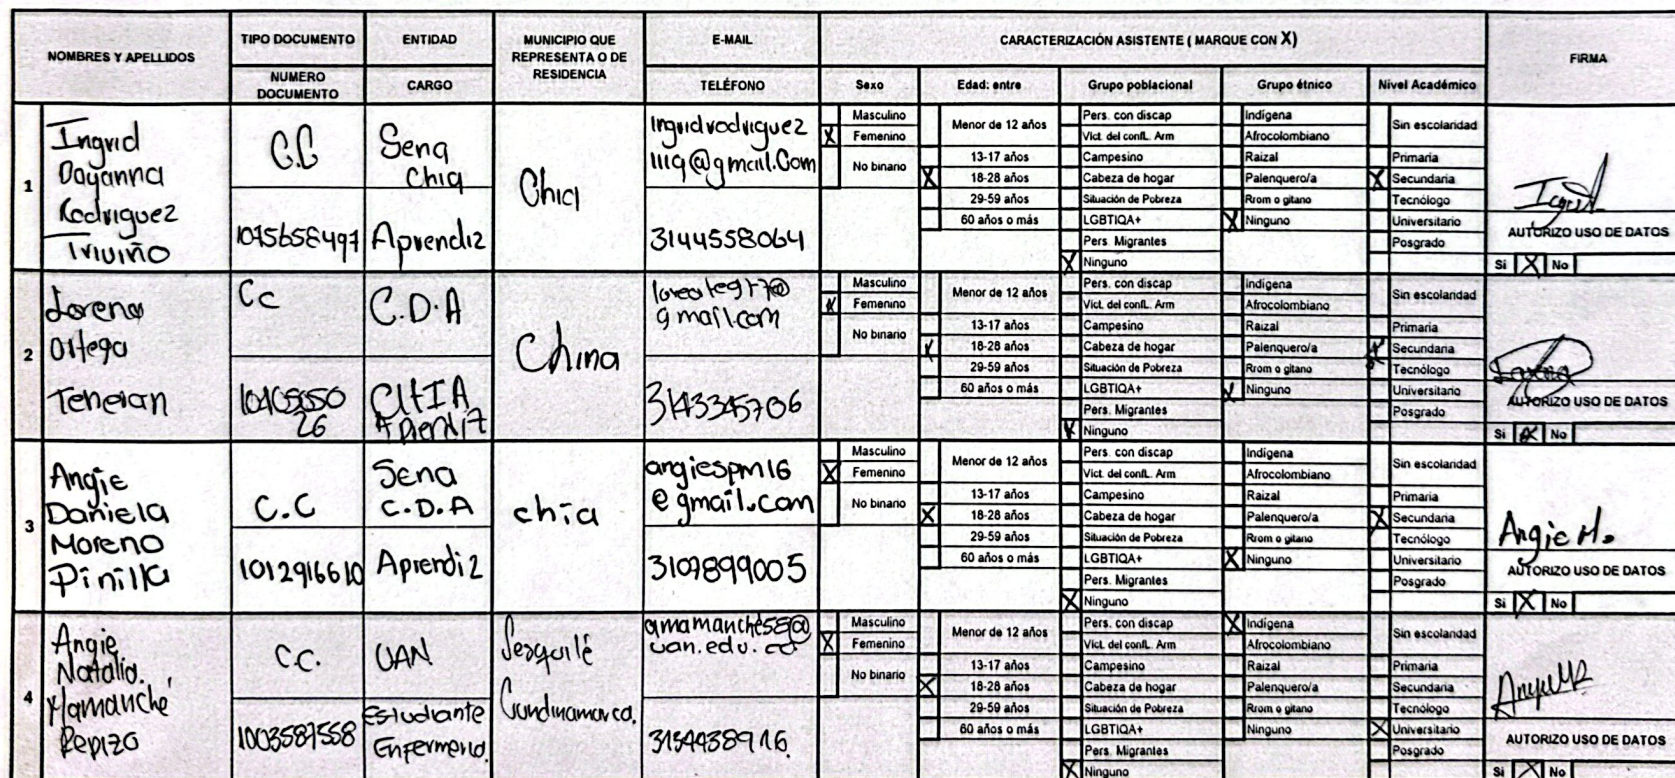 NOMBRES Y APELLIDOS
TIPO DOCUMENTO
NUMERO
DOCUMENTO
ENTIDAD
CARGO
MUNICIPIO QUE
REPRESENTA O DE
RESIDENCIA
E-MAIL
TELÉFONO
CARACTERIZACIÓN ASISTENTE ( MARQUE CON X)
Sexo
Edad: entre
Grupo poblacional
Grupo étnico
Nivel Académico
FIRMA
1
Ingrid
Dayanna
Rodriguez
Triviño
C.C
1075658497
Sena
Chia
Aprendiz
Chia
3144558064
Masculino
X Femenino
No binario
Menor de 12 años
13-17 años
X 18-28 años
29-59 años
60 años o más
Pers. con discap
Vict. del confL. Arm
Campesino
Cabeza de hogar
Situación de Pobreza
LGBTIQA+
Pers. Migrantes
X Ninguno
Indígena
Afrocolombiano
Raizal
Palenquero/a
Rrom o gitano
X Ninguno
Sin escolaridad
Primaria
X Secundaria
Tecnólogo
Universitario
Posgrado
Ingrid
AUTORIZO USO DE DATOS
Si X No
2
Lorena
Ortega
Teheran
Cc
C.D.A
CHIA
Aprendiz
China
gmail.com
3143345706
Masculino
X Femenino
No binario
Menor de 12 años
13-17 años
X 18-28 años
29-59 años
60 años o más
Pers. con discap
Vict. del confL. Arm
Campesino
Cabeza de hogar
Situación de Pobreza
LGBTIQA+
Pers. Migrantes
X Ninguno
Indígena
Afrocolombiano
Raizal
Palenquero/a
Rrom o gitano
X Ninguno
Sin escolaridad
Primaria
X Secundaria
Tecnólogo
Universitario
Posgrado
AUTORIZO USO DE DATOS
Si X No
3
Angie
Daniela
Moreno
Pinilla
C.C
1012916610
Sena
C.D.A
Aprendiz
chia
angiespm16
@gmail.com
3107899005
Masculino
X Femenino
No binario
Menor de 12 años
13-17 años
X 18-28 años
29-59 años
60 años o más
Pers. con discap
Vict. del confL. Arm
Campesino
Cabeza de hogar
Situación de Pobreza
LGBTIQA+
Pers. Migrantes
X Ninguno
Indígena
Afrocolombiano
Raizal
Palenquero/a
Rrom o gitano
X Ninguno
Sin escolaridad
Primaria
X Secundaria
Tecnólogo
Universitario
Posgrado
Angie M.
AUTORIZO USO DE DATOS
Si X No
4
Angie
Natalia.
Mamanché
Repizo
C.C.
1003587558
UAN
Estudiante
Enfermeria
Sesquilé
Cundinamarca.
amamanche58@
uan.edu.co
Masculino
X Femenino
No binario
Menor de 12 años
13-17 años
X 18-28 años
29-59 años
60 años o más
Pers. con discap
Vict. del confL. Arm
Campesino
Cabeza de hogar
Situación de Pobreza
LGBTIQA+
Pers. Migrantes
X Ninguno
X Indígena
Afrocolombiano
Raizal
Palenquero/a
Rrom o gitano
Ninguno
Sin escolaridad
Primaria
Secundaria
Tecnólogo
X Universitario
Posgrado
AUTORIZO USO DE DATOS
Si X No